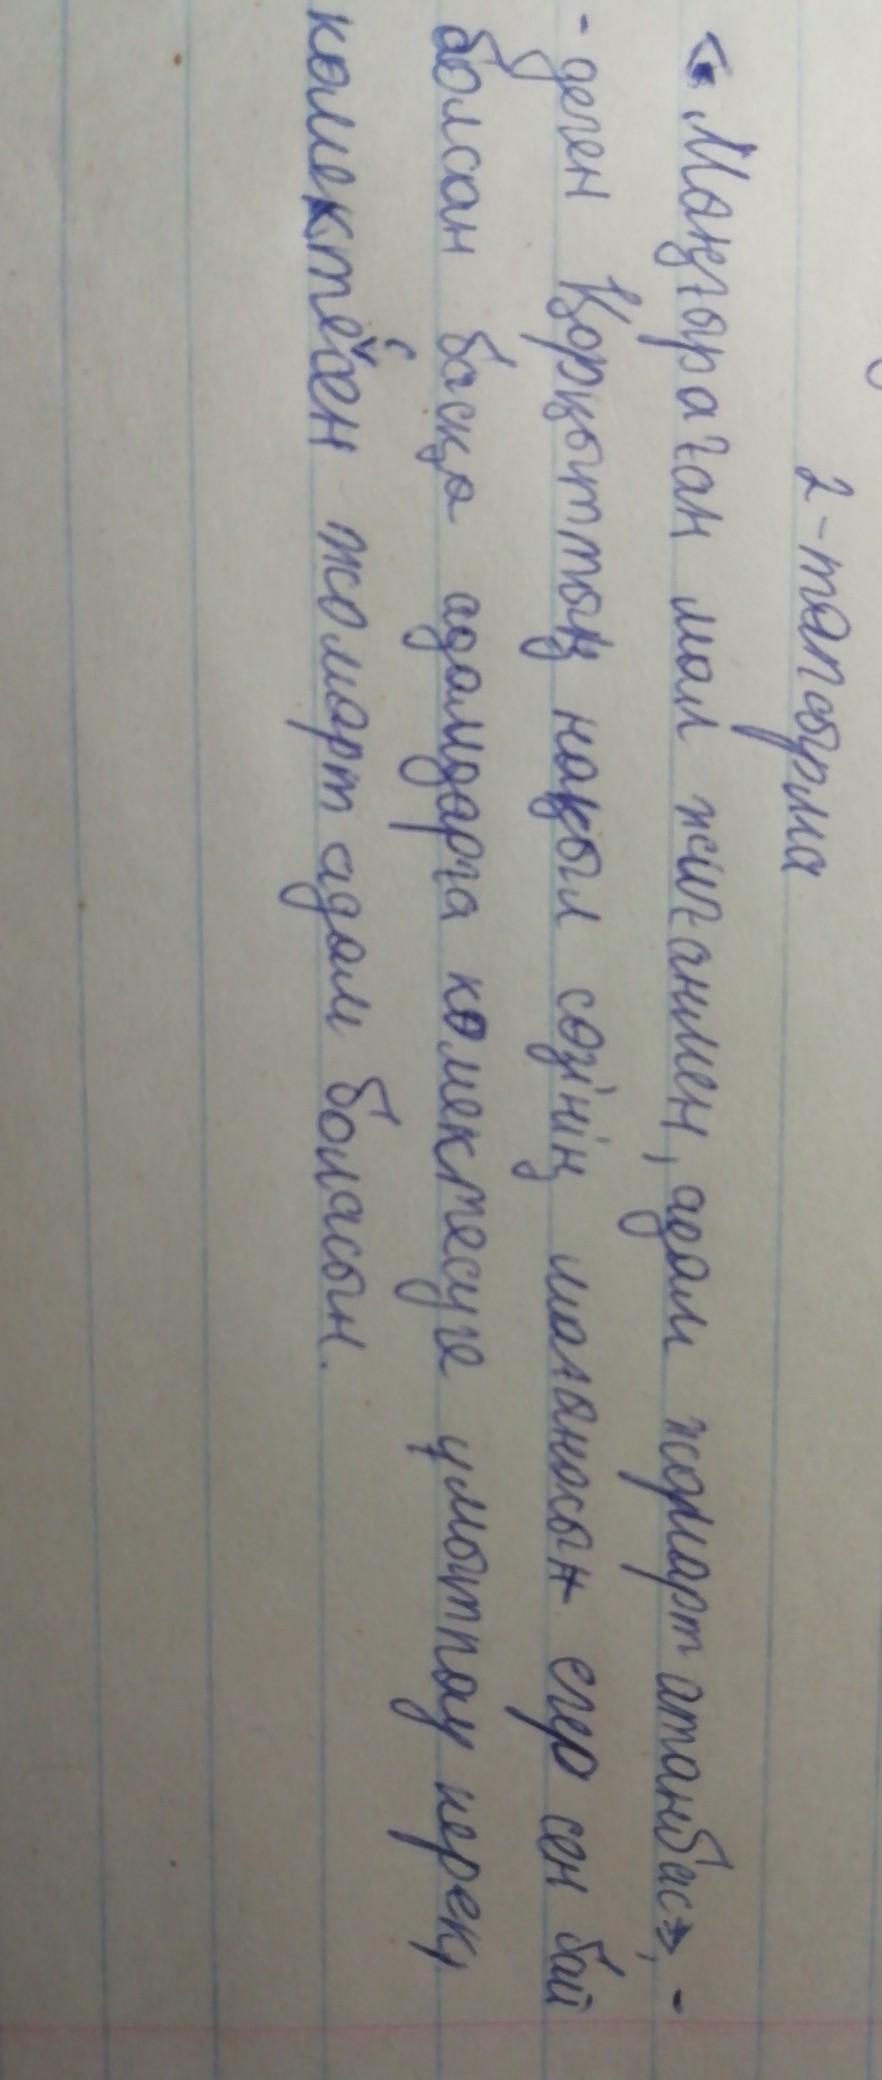 2-тапсырма
«Маңғыраған мал жиғанмен, адам жомарт атанбас», -
- деген Қорқыттың нақыл сөзінің мағанасын егер сен бай
болсан басқа адамдарға көмектесуге ұмытпау керек,
көмектесен жомарт адам боласын.